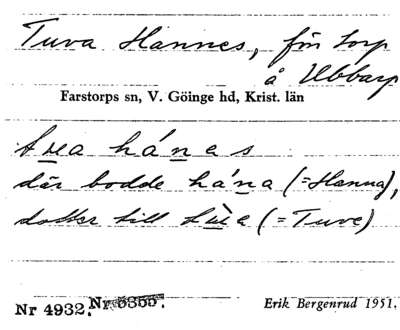 Tuva Hannes, för torp
å Ubbarp
Farstorps sn, V. Göinge hd, Krist. län
tɯa hánas
där bodde hána (=Hanna),
dotter till tɯ̀a (=Tuve)
Nr 4932. Nr 5355.
Erik Bergenrud 1951.